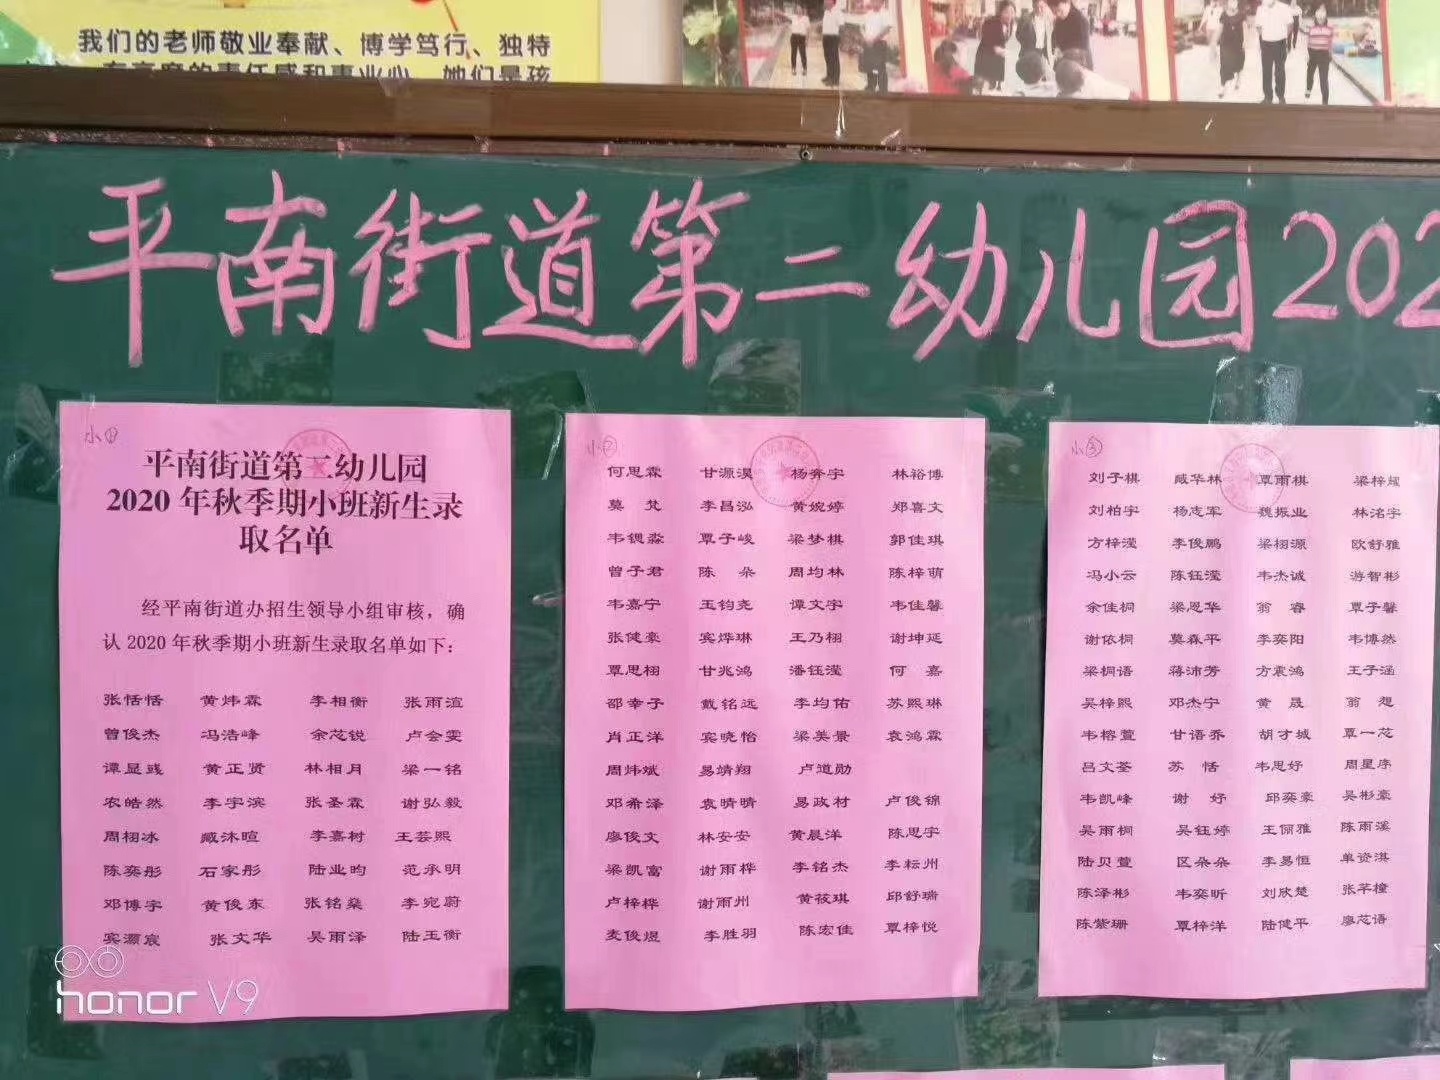 我们的老师敬业奉献、博学笃行、独特
有高度的责任感和事业心，她们是孩
平南街道第二幼儿园202
小①
平南街道第二幼儿园
2020年秋季期小班新生录
取名单
经平南街道办招生领导小组审核，确
认2020年秋季期小班新生录取名单如下：
张恬恬 黄炜霖 李相衡 张雨渲
曾俊杰 冯浩峰 余芯锐 卢会雯
谭显彧 黄正贤 林相月 梁一铭
农皓然 李宇滨 张圣霖 谢弘毅
周栩冰 臧沐暄 李嘉树 王芸熙
陈奕彤 石家彤 陆业昀 范承明
邓博宇 黄俊东 张铭燊 李宛蔚
宾灏宸 张文华 吴雨泽 陆玉衡
小②
何思霖 甘源淏 杨奔宇 林裕博
莫梵 李昌泓 黄婉婷 郑喜文
韦锶淼 覃子峻 梁梦棋 郭佳琪
曾子君 陈朵 周均林 陈梓萌
韦嘉宁 玉钧尧 谭文宇 韦佳馨
张健豪 宾烨琳 王乃栩 谢坤延
覃思栩 甘兆鸿 潘钰滢 何嘉
邵幸子 戴铭远 李均佑 苏熙琳
肖正洋 宾晓怡 梁美景 袁鸿霖
周炜斌 易靖翔 卢道勋
邓希泽 袁晴晴 易政材 卢俊锦
廖俊文 林安安 黄晨洋 陈思宇
梁凯富 谢雨桦 李铭杰 李耘州
卢梓桦 谢雨州 黄筱琪 邱舒瑞
麦俊煜 李胜羽 陈宏佳 覃梓悦
小③
刘子棋 臧华林 覃雨棋 梁梓耀
刘柏宇 杨志军 魏振业 林洺宇
方梓滢 李俊鹏 梁栩源 欧舒雅
冯小云 陈钰滢 韦杰诚 游智彬
余佳桐 梁恩华 翁睿 覃子馨
谢依桐 莫森平 李奕阳 韦博然
梁桐语 蒋沛芳 方震鸿 王子涵
吴梓熙 邓杰宁 黄晟 翁想
韦榕萱 甘语乔 胡才城 覃一芯
吕文荃 苏恬 韦思妤 周星序
韦凯峰 谢妤 邱奕豪 吴彬豪
吴雨桐 吴钰婷 王俪雅 陈雨溪
陆贝萱 区朵朵 李易恒 单资淇
陈泽彬 韦奕昕 刘欣楚 张芊橦
陈紫珊 覃梓洋 陆健平 廖芯语
honor V9